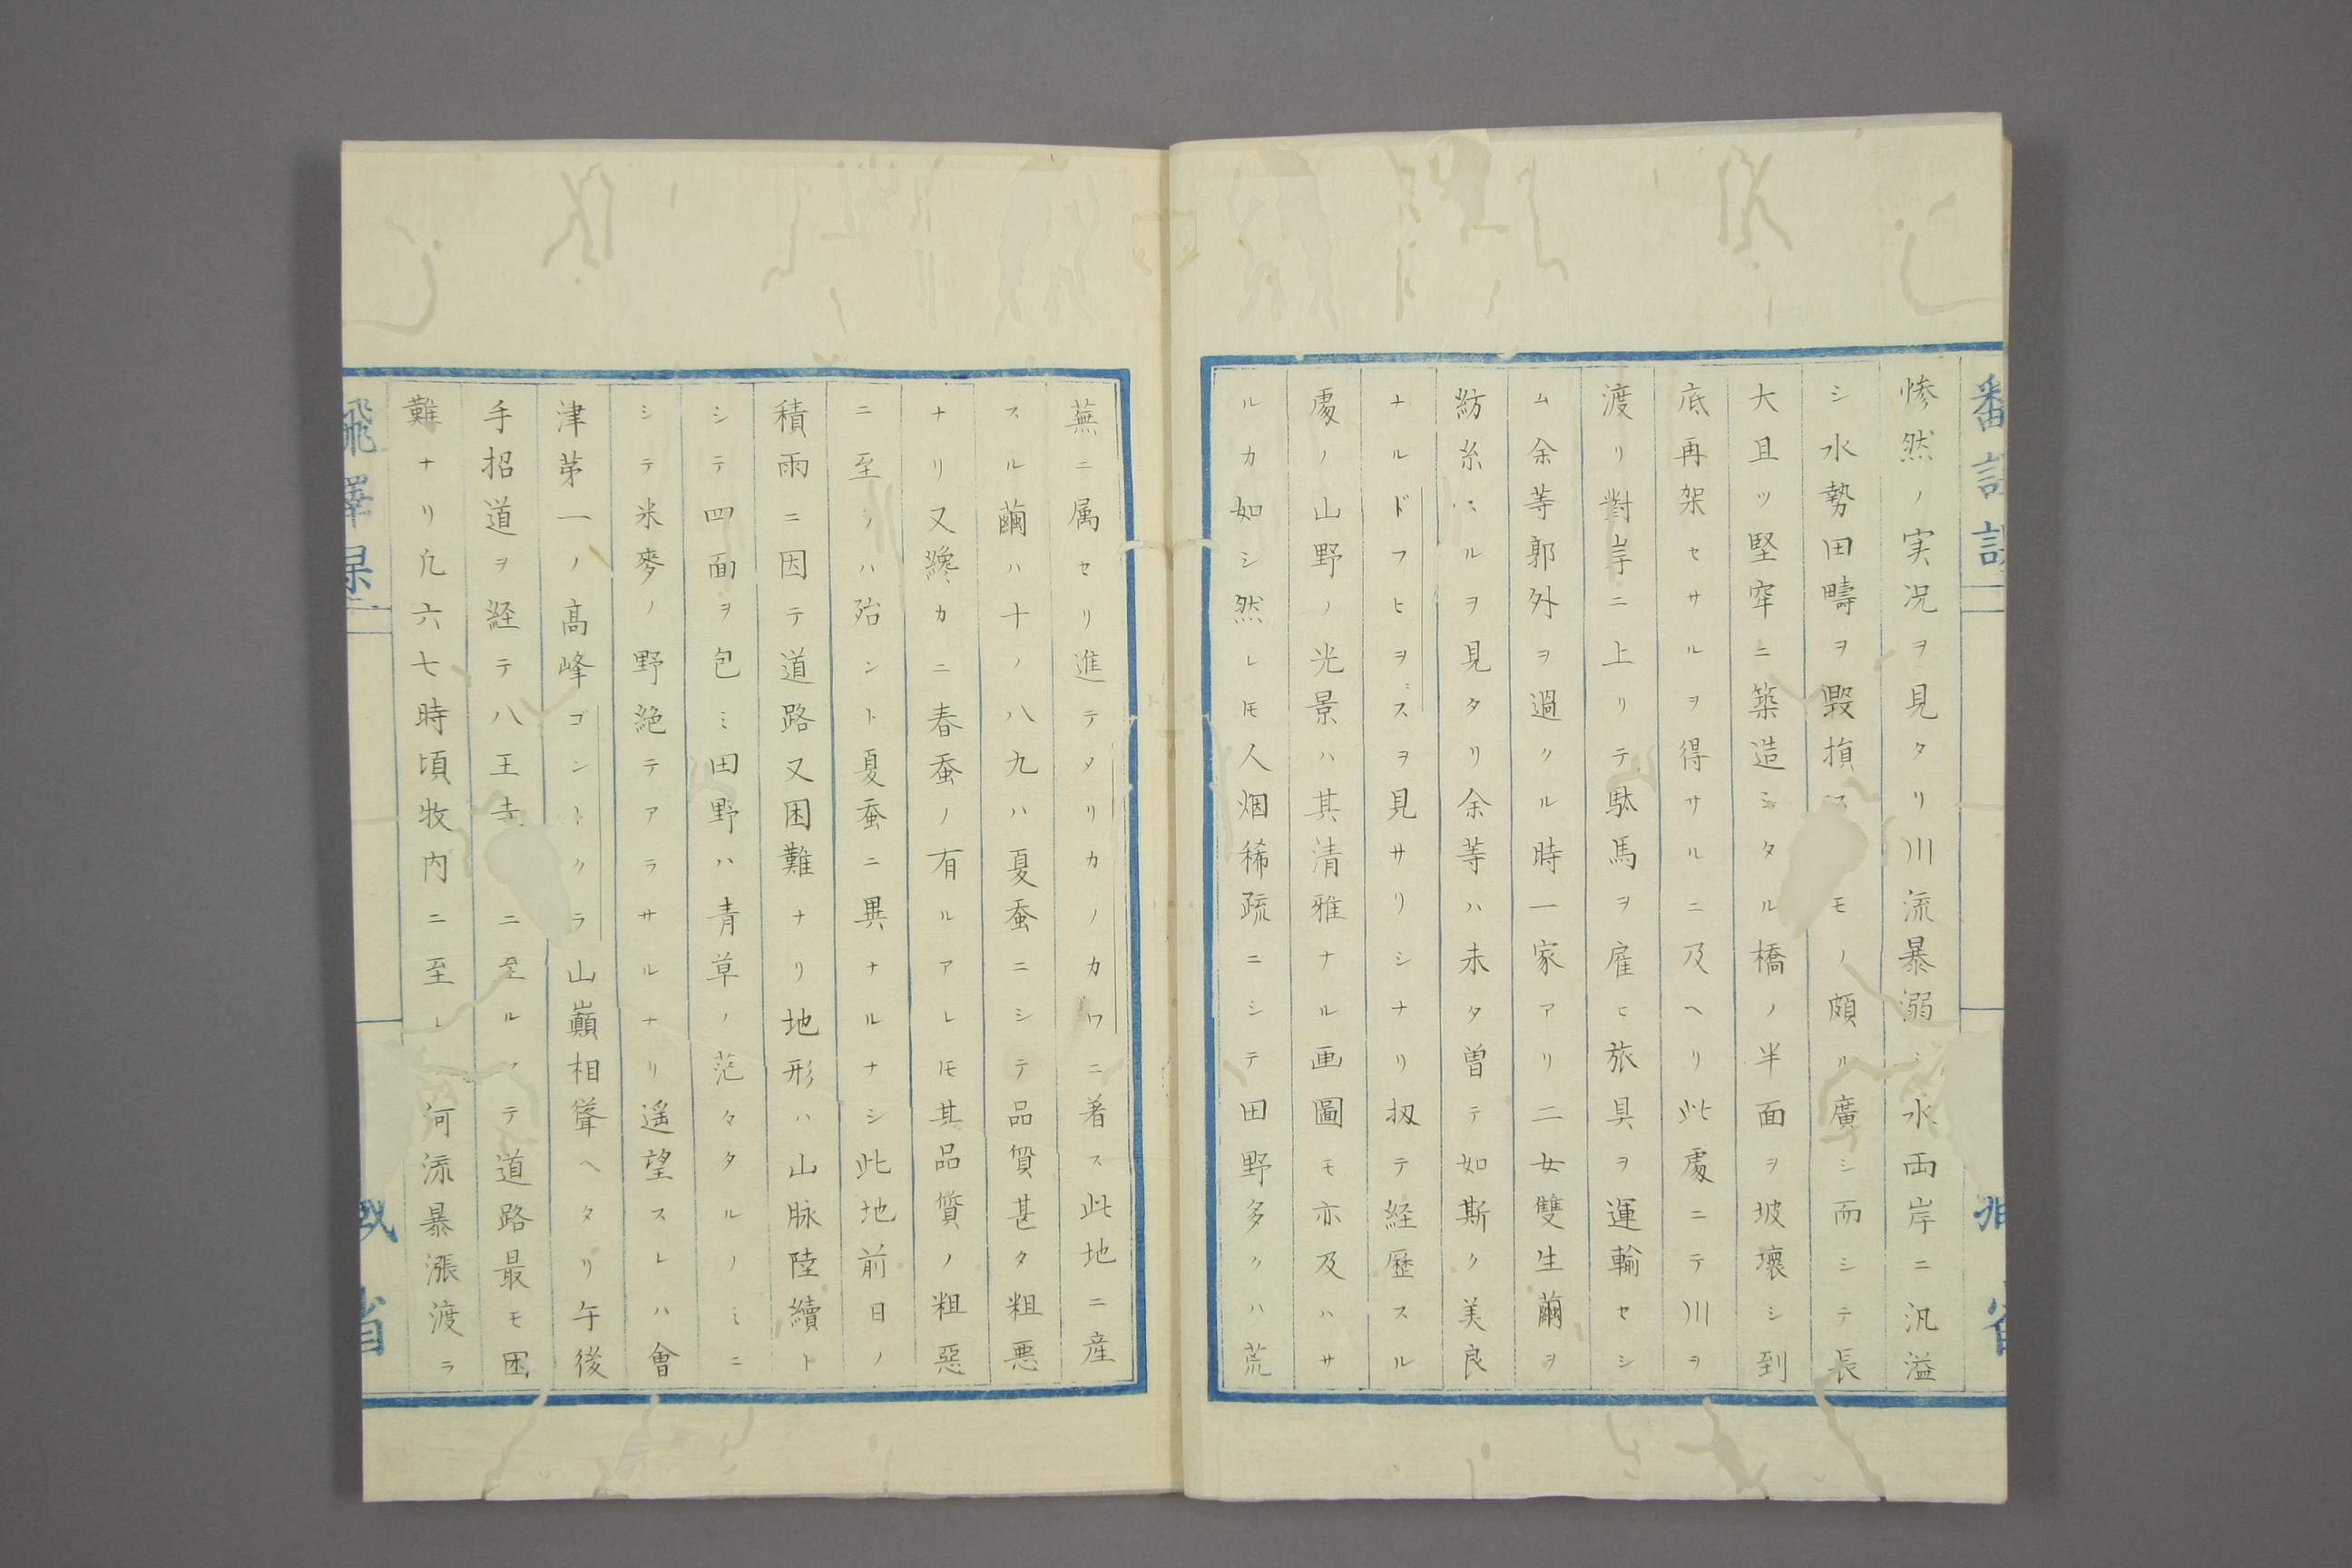 惨然ノ実况ヲ見タリ川流暴溺シ水両岸ニ汎溢
シ水勢田疇ヲ毀損スモノ頗ル廣シ而シテ長
大且ツ堅窂ニ築造シタル橋ノ半面ヲ坡壞シ到
底再架セサルヲ得サルニ及ヘリ此處ニテ川ヲ
渡リ對岸ニ上リテ駄馬ヲ雇ヒ旅具ヲ運輸セシ
ム余等郭外ヲ過クル時一家アリ二女雙生繭ヲ
紡糸スルヲ見タリ余等ハ未タ曽テ如斯ク美良
ナルドフヒヲンスヲ見サリシナリ扨テ経歴スル
處ノ山野ノ光景ハ其清雅ナル画圖モ亦及ハサ
ルカ如シ然レ𪜈人烟稀疏ニシテ田野多クハ荒
蕪ニ属セリ進テメリカノカワニ着ス此地ニ産
スル繭ハ十ノ八九ハ夏蚕ニシテ品質甚タ粗悪
ナリ又纔カニ春蚕ノ有ルアレ𪜈其品質ノ粗惡
ニ至ノハ殆ント夏蚕ニ異ナルナシ此地前日ノ
積雨ニ因テ道路又困難ナリ地形ハ山脉陸續ト
シテ四面ヲ包ミ田野ハ青草ノ茫々タルノミニ
シテ米麥ノ野絶テアラサルナリ遥望スレハ會
津第一ノ高峰ゴントクラ山巓相聳ヘタリ午後
手招道ヲ経テ八王寺ニ至ルテ道路最モ困
難ナリ凡六七時頃牧内ニ至レ河流暴漲渡ラ